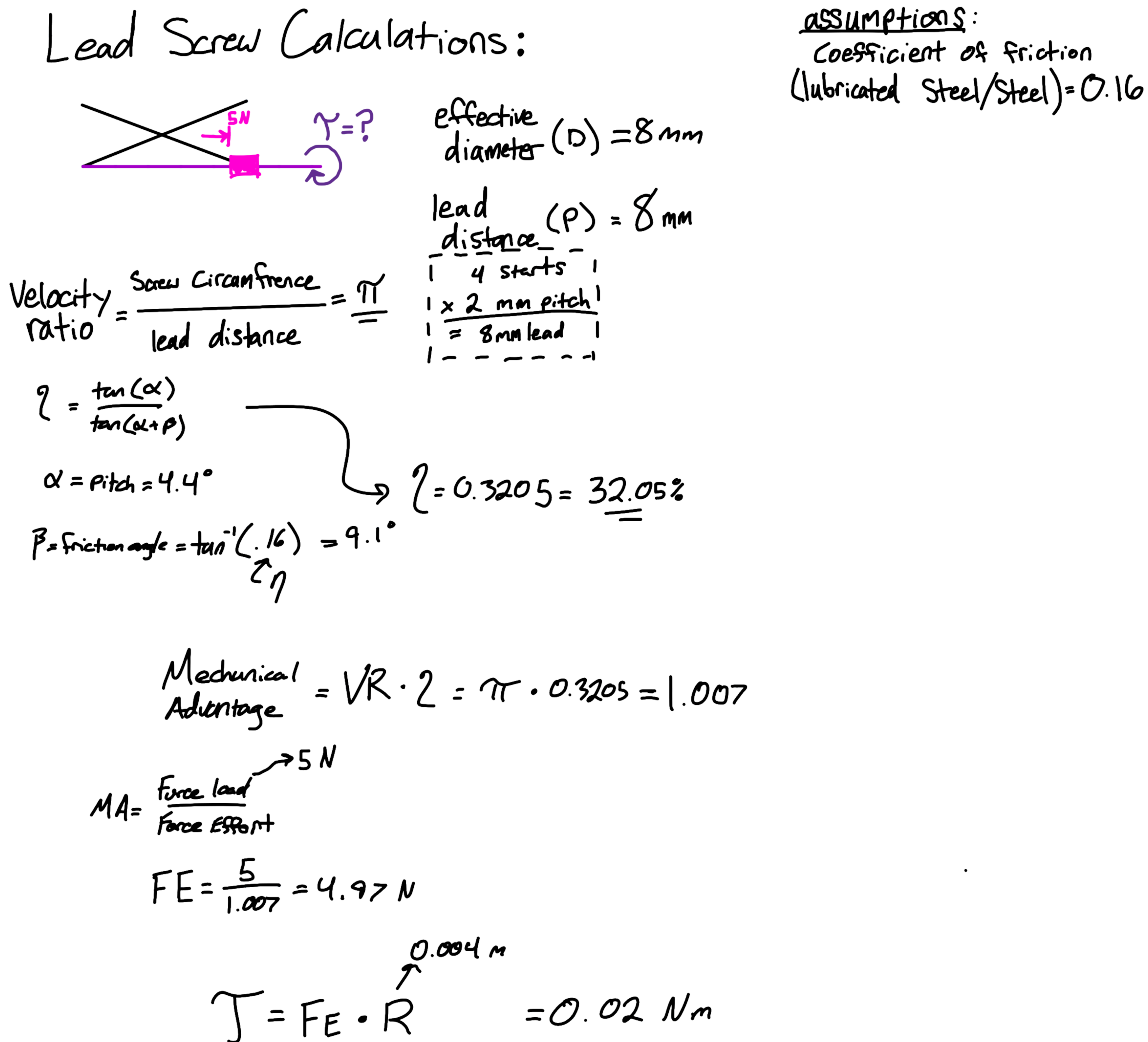 Lead Screw Calculations:
assumptions:
Coefficient of friction
(lubricated Steel/Steel)=0.16
5N
τ=?
effective
diameter (D) = 8 mm
lead
distance (P) = 8 mm
4 starts
x 2 mm pitch
= 8mm lead
Velocity ratio = Screw Circumfrence / lead distance = π
η = tan(α) / tan(α+β)
α = Pitch = 4.4°
η = 0.3205 = 32.05%
β = friction angle = tan⁻¹(.16) = 9.1°
η
Mechanical Advantage = VR · η = π · 0.3205 = 1.007
5 N
MA = Force load / Force Effort
FE = 5 / 1.007 = 4.97 N
0.004 m
τ = FE · R = 0.02 Nm